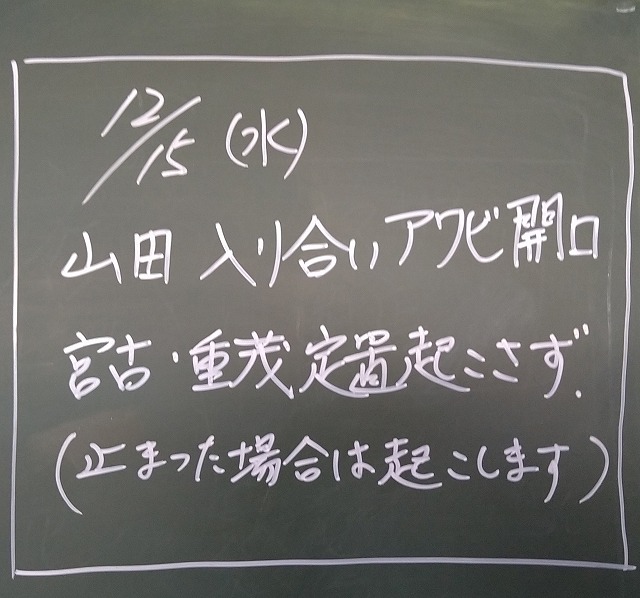 12/15 (水)
山田 入り合い アワビ開口
宮古・重茂 定置起こさず.
(止まった場合は起こします)